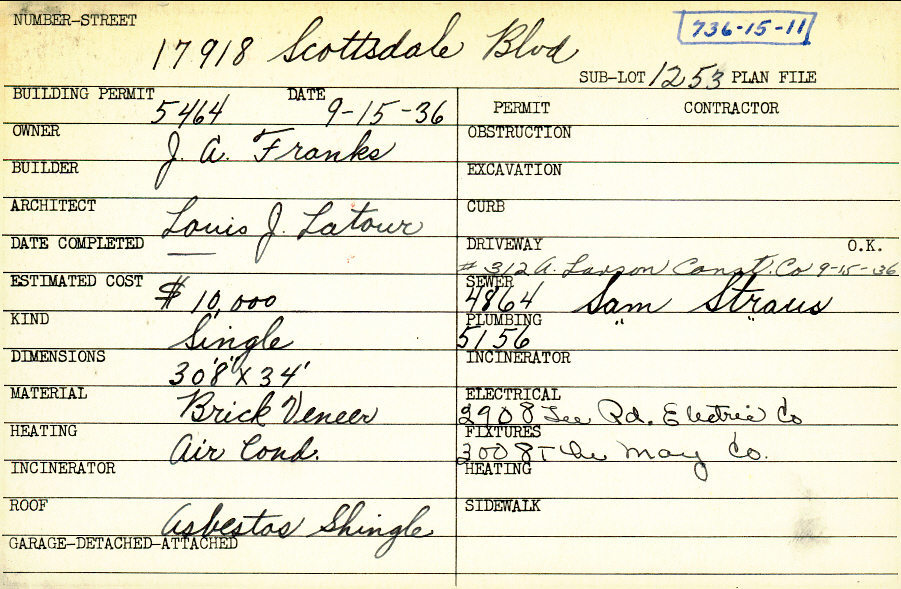 NUMBER-STREET
17918 Scottsdale Blvd
736-15-11
SUB-LOT 1253 PLAN FILE
BUILDING PERMIT 5464 DATE 9-15-36
OWNER J. A. Franks
BUILDER
ARCHITECT Louis J. Latour
DATE COMPLETED —
ESTIMATED COST $10,000
KIND Single
DIMENSIONS 30'8" X 34'
MATERIAL Brick Veneer
HEATING Air Cond.
INCINERATOR
ROOF Asbestos Shingle
GARAGE-DETACHED-ATTACHED
PERMIT CONTRACTOR
OBSTRUCTION
EXCAVATION
CURB
DRIVEWAY O.K.
# 312 A. Larson Const. Co 9-15-36
SEWER
4864 Sam Straus
PLUMBING
5156 " "
INCINERATOR
ELECTRICAL
2908 Lee Rd. Electric Co
FIXTURES
3008 The May Co.
HEATING
SIDEWALK